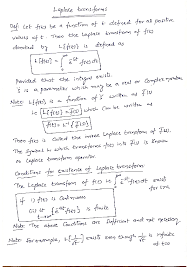 Laplace transforms
Def: Let f(t) be a function of t defined for all positive
values of t. Then the Laplace transform of f(t)
denoted by L{f(t)} is defined as
L{f(t)} = ∫ e^-st f(t) dt
Provided that the integral exists.
s is a parameter which may be a real or complex number
Note: L{f(t)} is a function of s written as f̄(s)
i.e. L{f(t)} = f̄(s) which can be written as
f(t) = L^-1{f̄(s)}
Then f(t) is called the inverse Laplace Transform of f̄(s).
The symbol L which transforms f(t) into f̄(s) is known
as Laplace transform operator.
Conditions for Existence of Laplace transform:
The Laplace transform of f(t) i.e. ∫ e^-st f(t) dt exists
for s>a
if i) f(t) is continuous
is finite
Note: The above Conditions are Sufficient and not necessary.
Note: For example, L{1/√t} exists even though 1/√t is infinite
at t=0